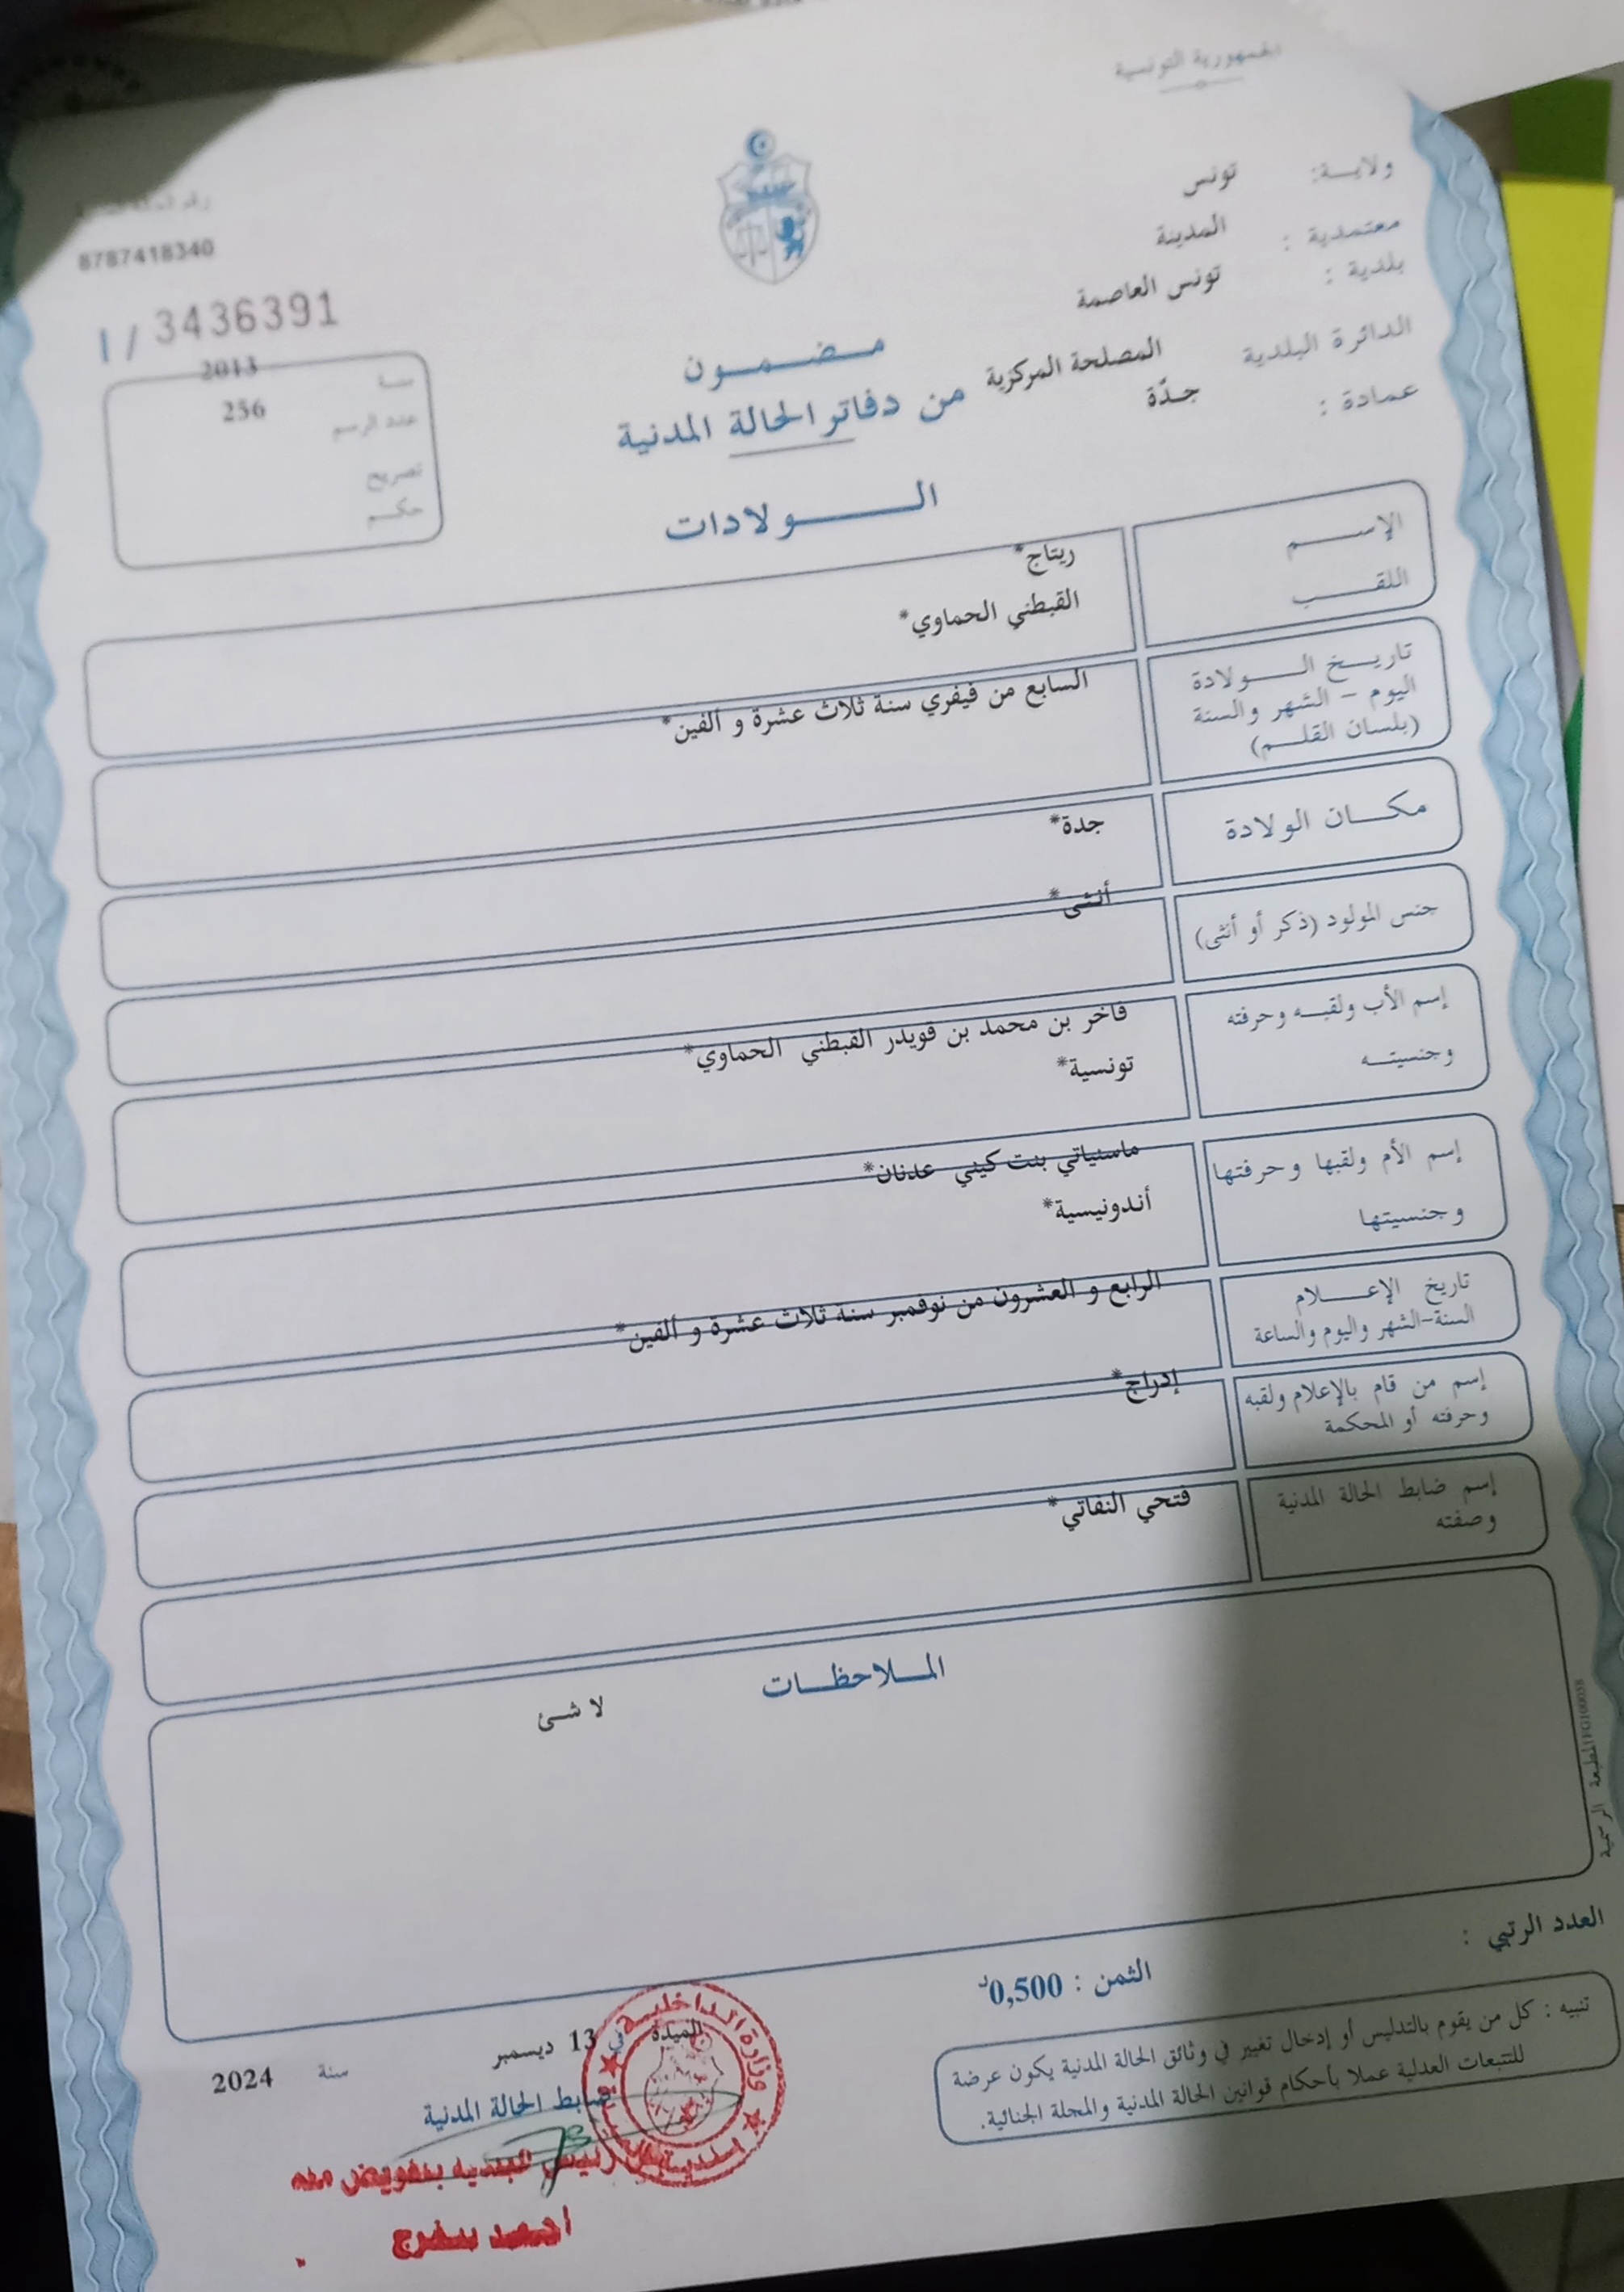 الجمهورية التونسية
ولايـــة: تونس
معتمدية : المدينة
بلدية : تونس العاصمة
الدائرة البلدية المصلحة المركزية
عمادة : جدّة
8787418340
3436391 / ا
سنة 2013
عدد الرسم 256
تصريح
حكـــم
مـضـمـون
من دفاتر الحالة المدنية
الـــولادات
الإســـم ريتاج*
اللقـــب القبطني الحماوي*
تاريـــخ الـــولادة
اليوم – الشهر والسنة
(بلسان القلـــم)
السابع من فيفري سنة ثلاث عشرة و ألفين*
مكـــان الولادة جدة*
جنس المولود (ذكر أو أنثى) أنثى*
إسم الأب ولقبـــه وحرفته
وجنسيتـــه
فاخر بن محمد بن قويدر القبطني الحماوي*
تونسية*
إسم الأم ولقبها وحرفتها
وجنسيتها
ماسنياتي بنت كيني عدنان*
أندونيسية*
تاريخ الإعـــلام
السنة-الشهر واليوم والساعة
الرابع و العشرون من نوفمبر سنة ثلاث عشرة و ألفين*
إسم من قام بالإعلام ولقبه
وحرفته أو المحكمة
إدراج*
إسم ضابط الحالة المدنية
وصفته
فتحي النفاتي*
المـــلاحظـــات
لا شئ
المطبعة الرسمية
العدد الرتبي :
الثمن : 0,500د
تنبيه : كل من يقوم بالتدليس أو إدخال تغيير في وثائق الحالة المدنية يكون عرضة
للتتبعات العدلية عملا بأحكام قوانين الحالة المدنية والمجلة الجنائية.
الميدة في 13 ديسمبر سنة 2024
ضابط الحالة المدنية
وزارة الداخلية
رئيس البلدية بتفويض منه
احمد بنفرج